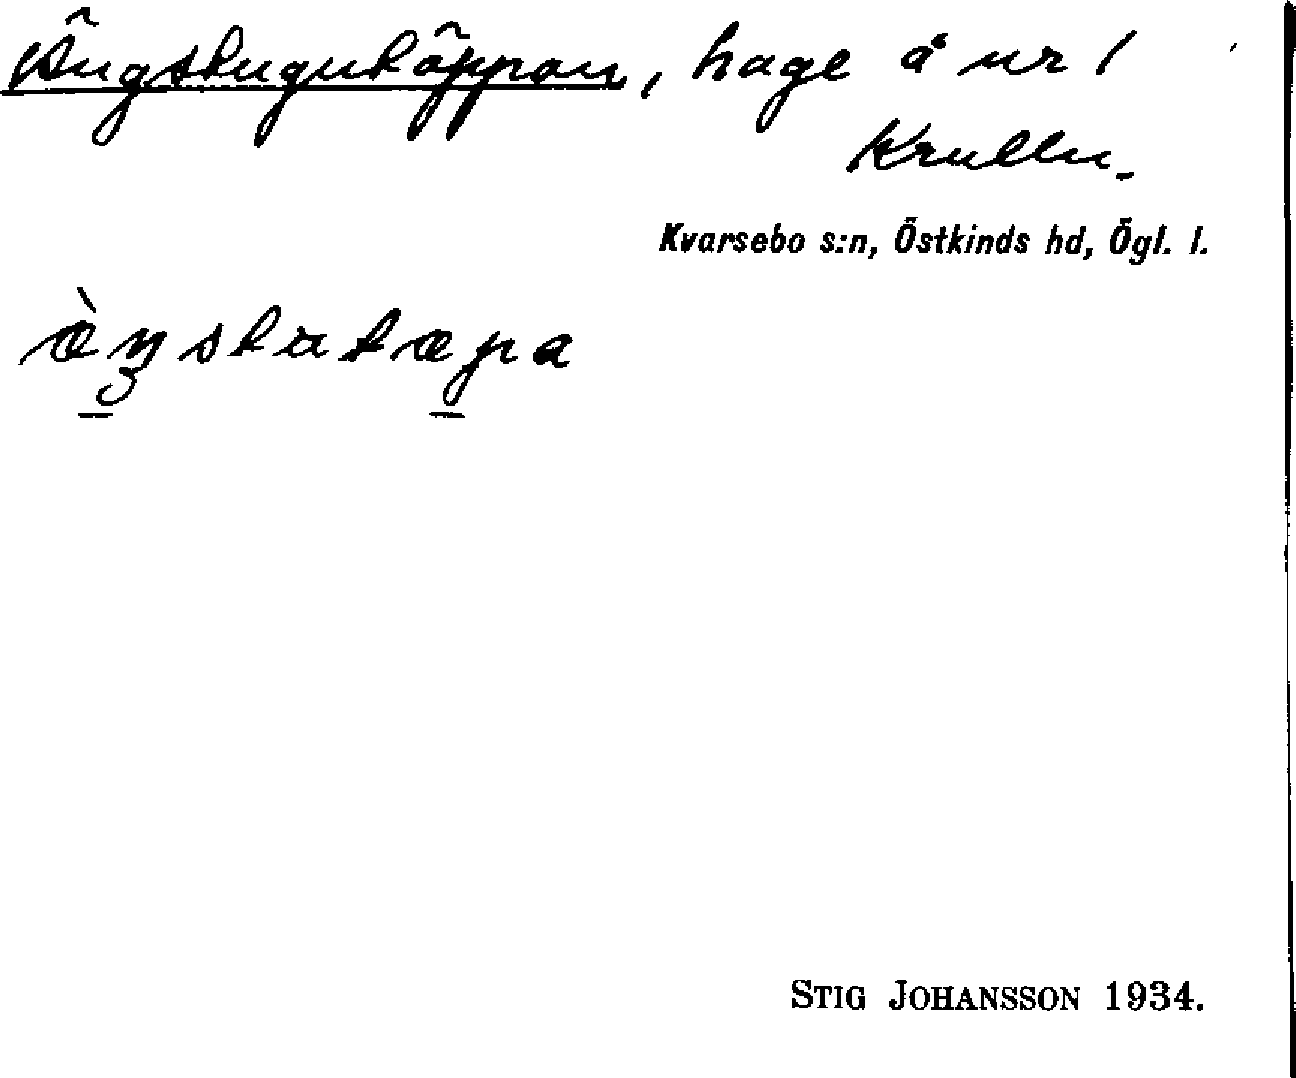 Ängstugutäppan, hage å nr 1
Krullen.
Kvarsebo s:n, Östkinds hd, Ögl. l.
Stig Johansson 1934.